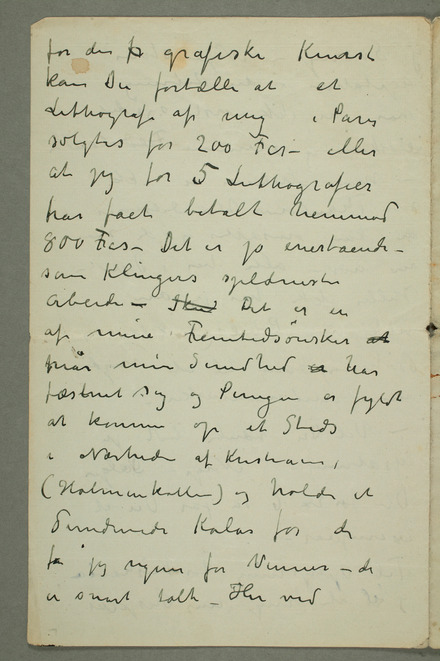 for den grafiske Kunst
kan Du fortælle at et
Lithografi af mig i Paris
solgtes for 200 Fcs – eller
at jeg for 5 Lithografier
har faet betalt henimod
800 Fcs – Det er jo enestaaende –
som Klingers sjeldneste
Arbeide – Det er en
af mine Fremtidsønsker at
når min Sundhed er har
fæstnet sig og Pungen er fyldt
at komme op et Steds
i Nærheden af Kristiania,
(Holmenkollen) og holde et
Sundheds Kalas for de
få jeg regner for Venner – de
er snart talt – Her ved